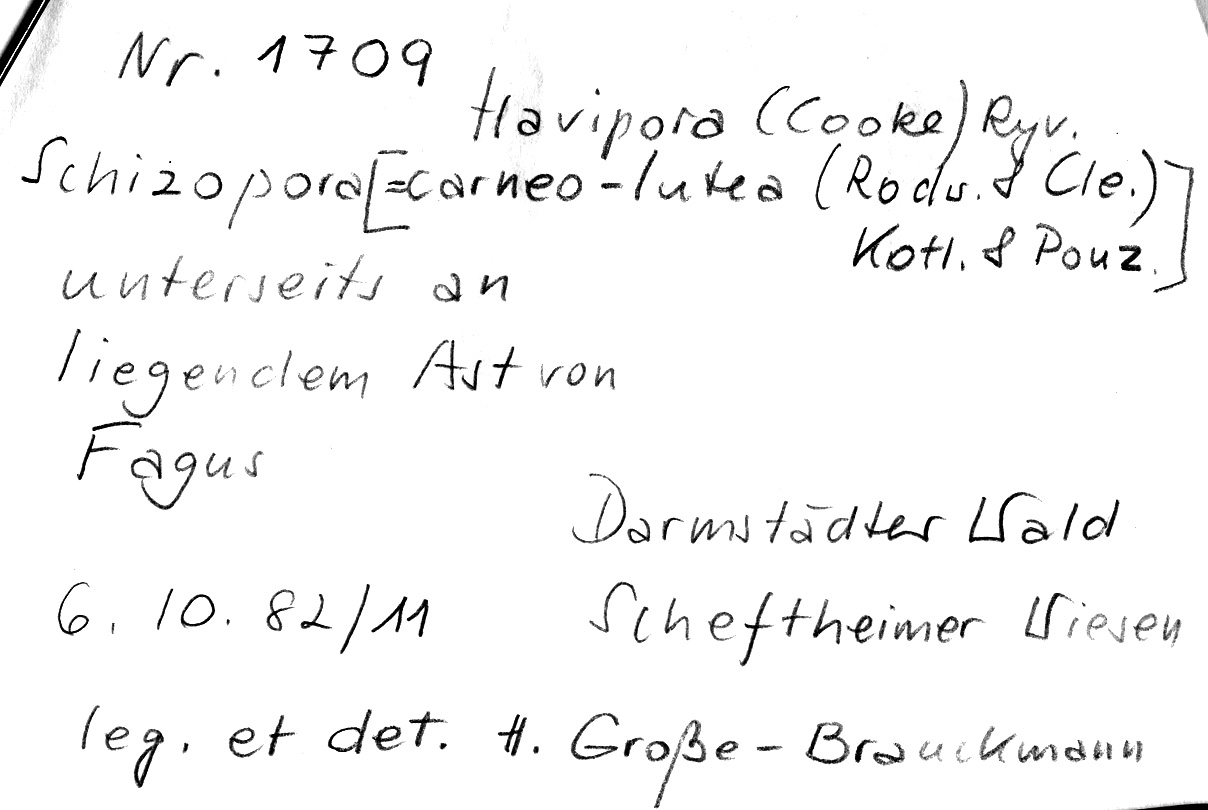 Nr. 1709
flavipora (Cooke) Ryv.
Schizopora [=carneo-lutea (Rodw. & Cle.)
Kotl. & Pouz.]
unterseits an
liegendem Ast von
Fagus
Darmstädter Wald
6. 10. 82/11 Scheftheimer Wiesen
leg. et det. H. Große-Brauckmann